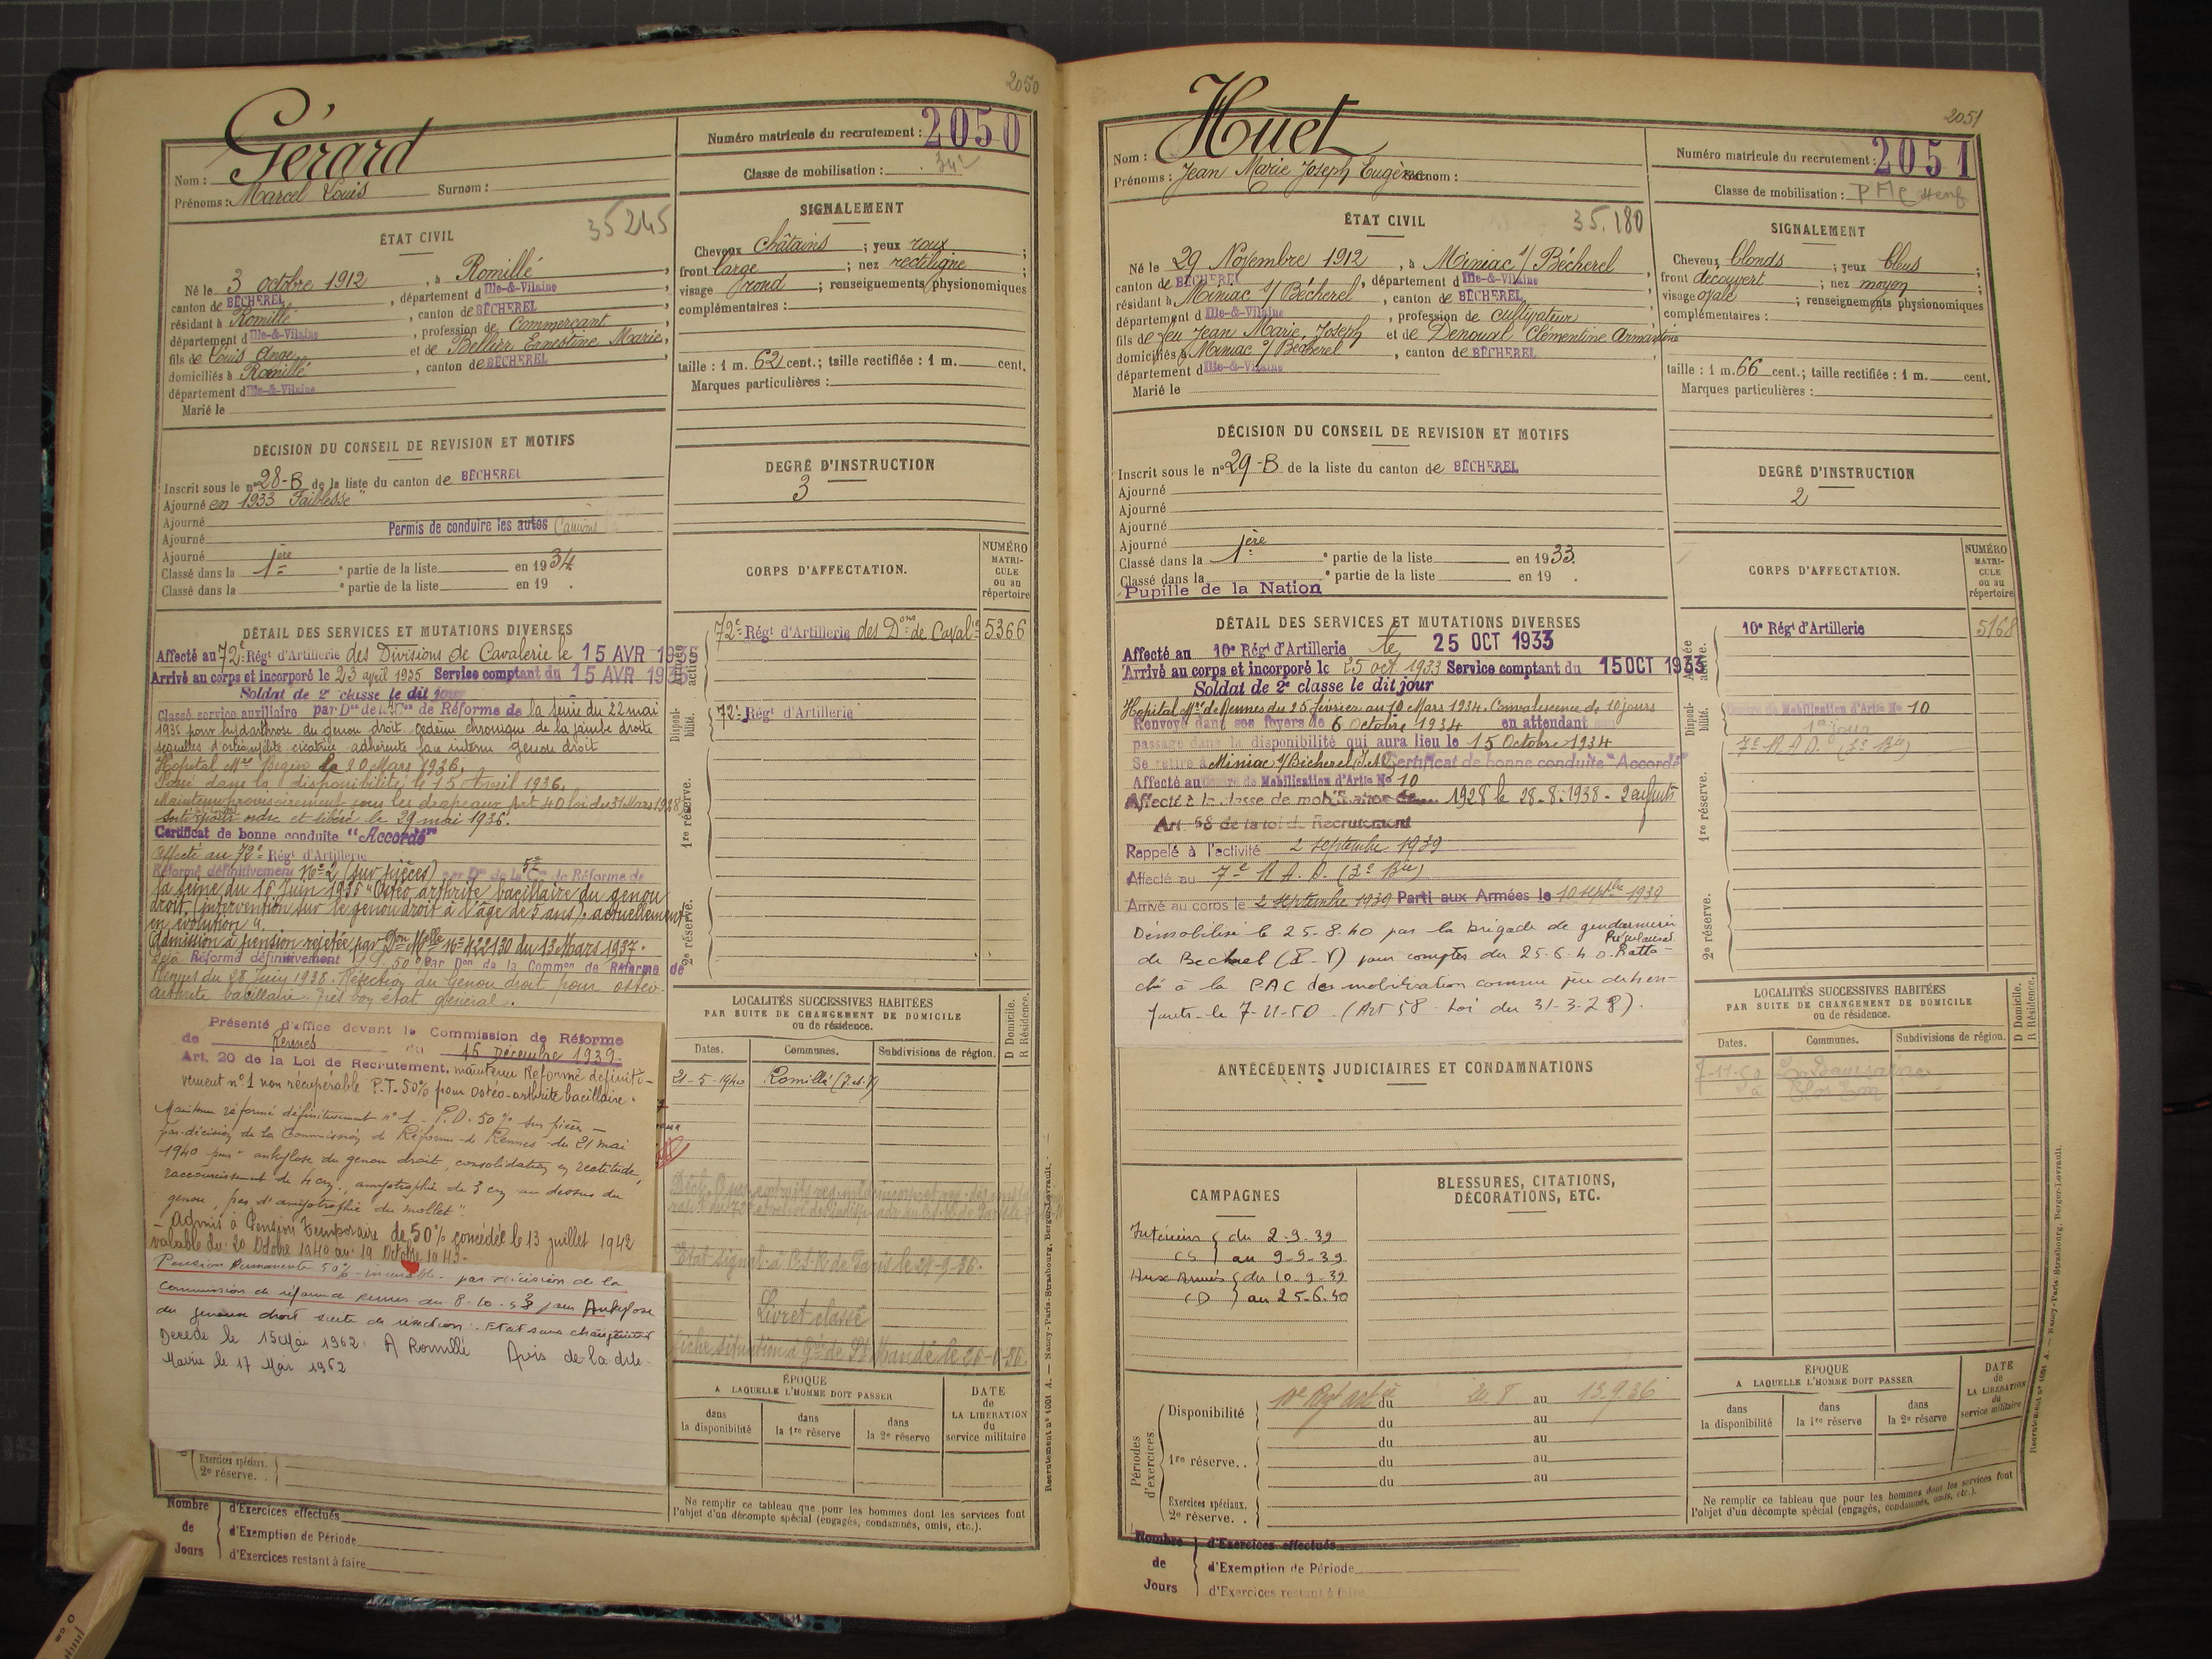 2050
Gérard
Nom :
Prénoms : Marcel Louis Surnom :
Numéro matricule du recrutement : 2050
Classe de mobilisation :
ÉTAT CIVIL
35245
Né le 3 octobre 1912, à Romillé,
canton de BÉCHEREL, département d Ille-&-Vilaine
résidant à Romillé, canton de BÉCHEREL,
département d Ille-&-Vilaine, profession de Commerçant,
fils de Louis Ange et de Bellier Ernestine Marie,
domiciliés à Romillé, canton de BÉCHEREL,
département d Ille-&-Vilaine
Marié le
SIGNALEMENT
Cheveux châtains ; yeux roux ;
front large ; nez rectiligne ;
visage rond ; renseignements physionomiques
complémentaires :
taille : 1 m. 62 cent.; taille rectifiée : 1 m. cent.
Marques particulières :
DÉCISION DU CONSEIL DE REVISION ET MOTIFS
Inscrit sous le n° 28-B de la liste du canton de BÉCHEREL
Ajourné en 1933 "Faiblesse"
Ajourné
Permis de conduire les autos Camions
Ajourné
Ajourné
Classé dans la 1ère e partie de la liste en 1934
Classé dans la e partie de la liste en 19 .
DEGRÉ D'INSTRUCTION
3
CORPS D'AFFECTATION.
NUMÉRO MATRICULE ou au répertoire
72e Régt d'Artillerie des Dons de Cavalie 5366
72e Régt d'Artillerie
Armée active.
Disponibilité.
1re réserve.
2e réserve.
DÉTAIL DES SERVICES ET MUTATIONS DIVERSES
Affecté au 72e Régt d'Artillerie des Divisions de Cavalerie le 15 AVR 1935
Arrivé au corps et incorporé le 23 avril 1935 Service comptant du 15 AVR 1935
Soldat de 2e classe le dit jour
Classé service auxiliaire par Don de la Con de Réforme de la Seine du 22 mai
1935 pour hydarthrose du genou droit. œdème chronique de la jambe droite
séquelles d'ostéomyélite cicatrice adhérente face interne genou droit
Hopital Mre Bégin le 20 Mars 1936.
Passé dans la disponibilité le 15 Avril 1936.
Maintenu provisoirement sous les drapeaux Art 40 loi du 31 Mars 1928
ordre et libéré le 29 mai 1936.
Certificat de bonne conduite "Accordé"
Affecté au 72e Régt d'Artillerie
Réformé définitivement No 2 (sur pièces) par Don de la 5e Con de Réforme de
la Seine du 16 Juin 1936 "Ostéo arthrite bacillaire du genou
droit (intervention sur le genou droit à l'âge de 5 ans). actuellement
en évolution".
Admission à pension rejetée par Don Melle No 422130 du 13 Mars 1937.
Déjà Réformé définitivement P.T. 50% par Don de la Common de Réforme de
Rennes du 28 Juin 1938. Résection du Genou droit pour ostéo-
arthrite bacillaire. Très bon état général.
Présenté d'office devant la Commission de Réforme
de Rennes du 16 Décembre 1939.
Art. 20 de la Loi de Recrutement. maintenu Réformé définiti-
vement n° 1 non récupérable P.T. 50% pour ostéo-arthrite bacillaire.
Maintenu réformé définitivement n° 1 - P.D. 50% sur pièces -
par décision de la Commission de Réforme de Rennes du 21 mai
1940 pour "ankylose du genou droit, consolidation en rectitude,
raccourcissement de 4 cm., amyotrophie de 3 cm au dessus du
genou, pas d'amyotrophie du mollet".
- Admis à Pension Temporaire de 50% concédée le 13 juillet 1942
valable du 20 Octobre 1940 au 19 Octobre 1943.
Pension Permanente 50% incurable par décision de la
Commission de réforme de Rennes du 8-10-53 pour Ankylose
du genou droit suite de résection. Etat sans changement
Décédé le 15 Mai 1962 A Romillé Avis de la dite
Mairie le 17 Mai 1962
LOCALITÉS SUCCESSIVES HABITÉES
PAR SUITE DE CHANGEMENT DE DOMICILE
ou de résidence.
D Domicile. R Résidence.
Dates. Communes. Subdivisions de région.
21-5-1940 Romillé (I.et.V)
Livret classé
ÉPOQUE
A LAQUELLE L'HOMME DOIT PASSER
dans la disponibilité
dans la 1re réserve
dans la 2e réserve
DATE de LA LIBÉRATION du service militaire
Ne remplir ce tableau que pour les hommes dont les services font
l'objet d'un décompte spécial (engagés, condamnés, omis, etc.).
Exercices spéciaux.
2e réserve. .
Nombre de Jours
d'Exercices effectués
d'Exemption de Période
d'Exercices restant à faire
Recrutement n° 1001 A. — Nancy-Paris-Strasbourg, Berger-Levrault.
2051
Huet
Nom :
Prénoms : Jean Marie Joseph Eugène Surnom :
Numéro matricule du recrutement : 2051
Classe de mobilisation :
ÉTAT CIVIL
35.180
Né le 29 Novembre 1912, à Miniac s/ Bécherel
canton de BÉCHEREL, département d Ille-&-Vilaine
résidant à Miniac s/ Bécherel, canton de BÉCHEREL,
département d Ille-&-Vilaine, profession de cultivateur
fils de feu Jean Marie Joseph et de Denoual Clémentine Armantine
domiciliés à Miniac s/ Bécherel, canton de BÉCHEREL
département d Ille-&-Vilaine
Marié le
SIGNALEMENT
Cheveux blonds ; yeux bleus ;
front découvert ; nez moyen ;
visage ovale ; renseignements physionomiques
complémentaires :
taille : 1 m. 66 cent.; taille rectifiée : 1 m. cent.
Marques particulières :
DÉCISION DU CONSEIL DE REVISION ET MOTIFS
Inscrit sous le n° 29-B de la liste du canton de BÉCHEREL
Ajourné
Ajourné
Ajourné
Ajourné
Classé dans la 1ère e partie de la liste en 1933.
Classé dans la e partie de la liste en 19 .
Pupille de la Nation
DEGRÉ D'INSTRUCTION
2
CORPS D'AFFECTATION.
NUMÉRO MATRICULE ou au répertoire
10e Régt d'Artillerie 5168
Centre de Mobilisation d'Artie No 10
7e R A D (2e Bie)
Armée active.
Disponibilité.
1re réserve.
2e réserve.
DÉTAIL DES SERVICES ET MUTATIONS DIVERSES
Affecté au 10e Régt d'Artillerie le 25 OCT 1933
Arrivé au corps et incorporé le 25 oct. 1933 Service comptant du 15 OCT 1933
Soldat de 2e classe le dit jour
Hopital Mre de Rennes du 25 février au 10 Mars 1934. Convalescence de 10 jours
Renvoyé dans ses foyers le 6 Octobre 1934 en attendant son
passage dans la disponibilité qui aura lieu le 15 Octobre 1934
Se retire à Miniac s/ Bécherel (I.&V) Certificat de bonne conduite "Accordé"
Affecté au Centre de Mobilisation d'Artie No 10
Affecté à la classe de mobilisation de 1928 le 28-8-1938 - 2 enfants
Art. 58 de la loi de Recrutement
Rappelé à l'activité 2 septembre 1939
Affecté au 7e R A D. (2e Bie)
Arrivé au corps le 2 septembre 1939 Parti aux Armées le 10 septbre 1939
Démobilisé le 25-8-40 par la brigade de gendarmerie
de Becherel (I-V) pour compter du 25-6-40. Ratta-
ché à la PAC de mobilisation comme père de 4 en-
fants le 7-11-50. (Art 58 Loi du 31-3-28).
ANTÉCÉDENTS JUDICIAIRES ET CONDAMNATIONS
CAMPAGNES
Intérieur du 2-9-39
(CS) au 9-9-39
Aux Armées du 10-9-39
(D) au 25-6-40
BLESSURES, CITATIONS,
DÉCORATIONS, ETC.
LOCALITÉS SUCCESSIVES HABITÉES
PAR SUITE DE CHANGEMENT DE DOMICILE
ou de résidence.
D Domicile. R Résidence.
Dates. Communes. Subdivisions de région.
Périodes d'exercices.
Disponibilité 10e Rgt artie du 24.8 au 13.9.36
du au
1re réserve. . du au
du au
du au
Exercices spéciaux.
2e réserve. .
ÉPOQUE
A LAQUELLE L'HOMME DOIT PASSER
dans la disponibilité
dans la 1re réserve
dans la 2e réserve
DATE de LA LIBÉRATION du service militaire
Ne remplir ce tableau que pour les hommes dont les services font
l'objet d'un décompte spécial (engagés, condamnés, omis, etc.).
Nombre de Jours
d'Exercices effectués
d'Exemption de Période
d'Exercices restant à faire
Recrutement n° 1001 A. — Nancy-Paris-Strasbourg, Berger-Levrault.